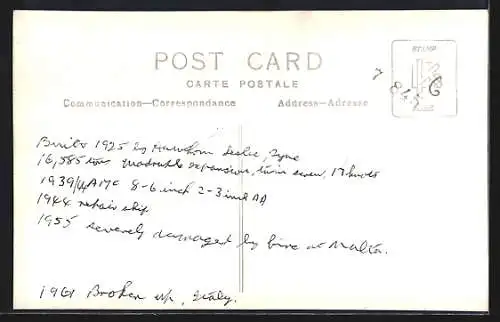 POST CARD
CARTE POSTALE
Communication—Correspondance Address—Adresse
STAMP
7 845 6
Built 1925 by Hawthorn Leslie, Tyne
16,585 tons quadruple expansion, twin screw, 17 knots
1939/44 AMC 8-6 inch 2-3 inch AA
1944 repair ship
1955 severely damaged by fire at Malta.
1961 Broken up, Italy.